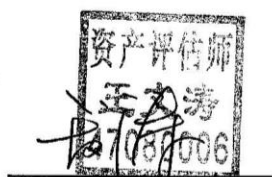 资产评估师
王文涛
47080006